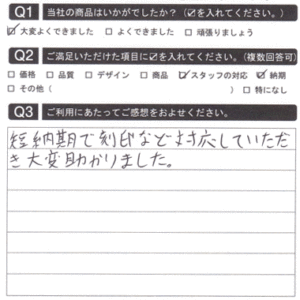 Q1 当社の商品はいかがでしたか？（☑を入れてください。）
☑大変よくできました □よくできました □頑張りましょう
Q2 ご満足いただけた項目に☑を入れてください。（複数回答可）
□価格 □品質 □デザイン □商品 ☑スタッフの対応 ☑納期
□その他（ ） □特になし
Q3 ご利用にあたってご感想をおよせください。
短納期で刻印など対応していただ
き大変助かりました。